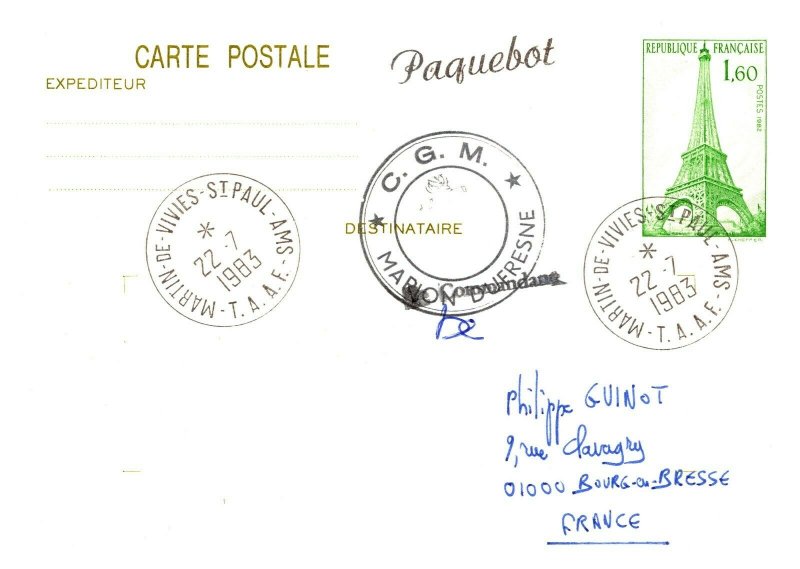 CARTE POSTALE
EXPEDITEUR
Paquebot
REPUBLIQUE FRANÇAISE
1,60
POSTES 1982
C. G. M.
MARION DUFRESNE
DESTINATAIRE
Le Commandant
MARTIN-DE-VIVIES-ST PAUL-AMS
22-7
1983
T.A.A.F.
MARTIN-DE-VIVIES-ST PAUL-AMS
22-7
1983
T.A.A.F.
Philippe GUINOT
9, rue
01000 BOURG-en-BRESSE
FRANCE